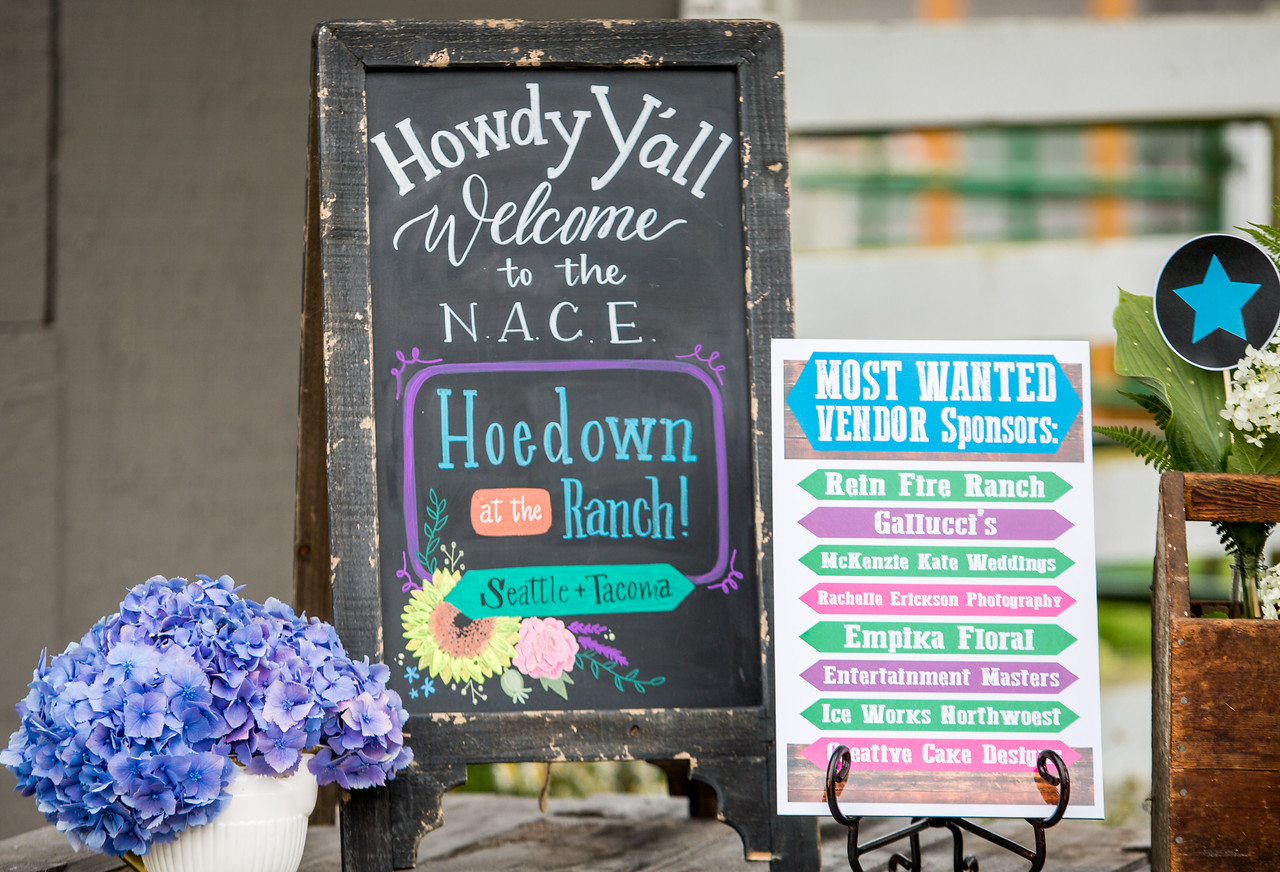 Howdy Y'all
Welcome
to the
N.A.C.E.
Hoedown
at the Ranch!
Seattle + Tacoma
MOST WANTED
VENDOR Sponsors:
Rein Fire Ranch
Gallucci's
McKenzie Kate Weddings
Rachelle Erickson Photography
Empika Floral
Entertainment Masters
Ice Works Northwoest
Creative Cake Designs